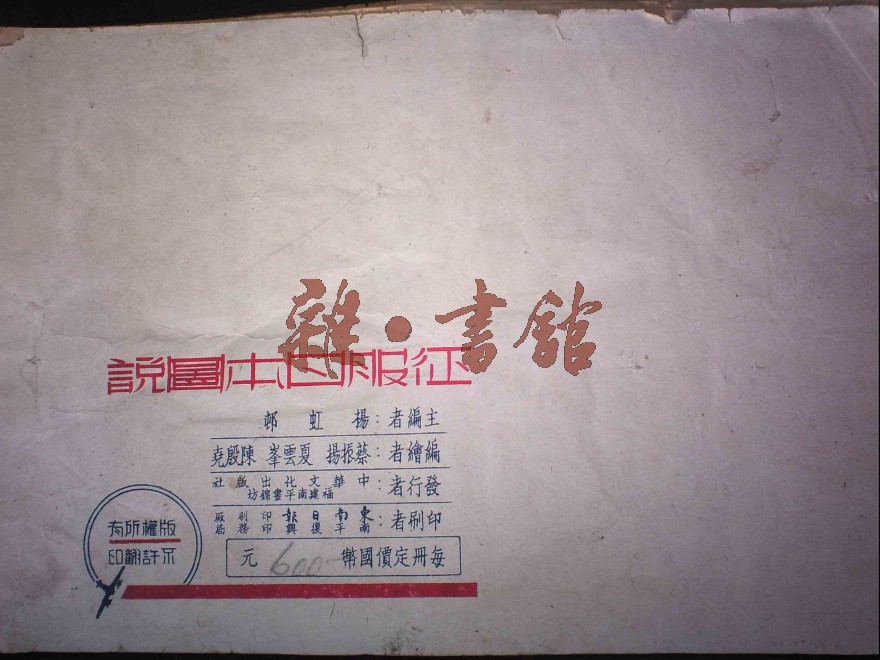 雜·書館
征服日本圖說
主編者：揚虹邨
編繪者：蔡振揚 夏雲峯 陳殷堯
發行者：中華文化出版社
福建南平畫錦坊
印刷者：東南日報印刷廠
南平復興印務局
每冊定價國幣 600 元
版權所有
不許翻印